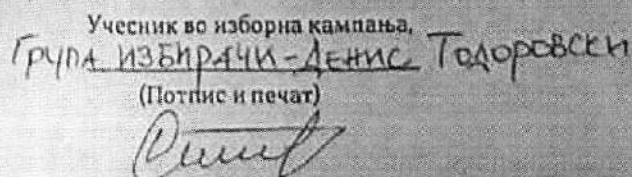 Учесник во изборна кампања,
Група избирачи-Денис Тодоровски
(Потпис и печат)